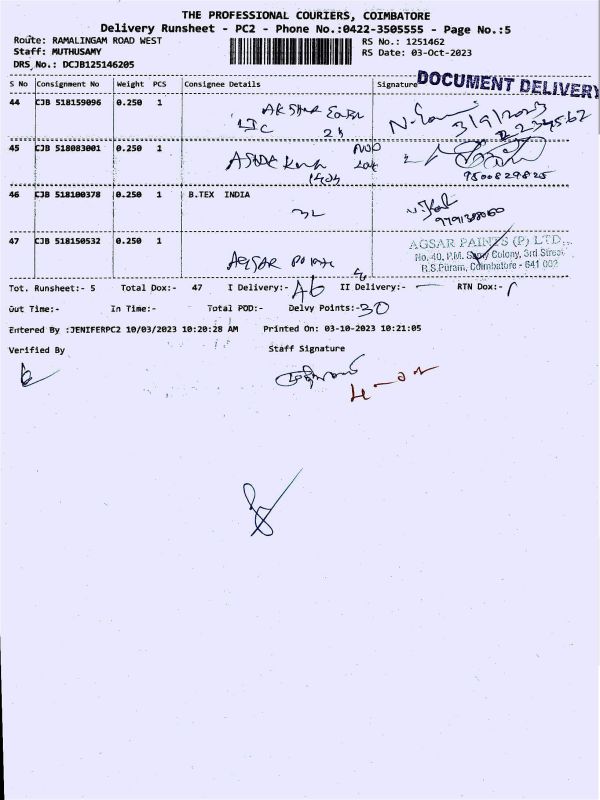 THE PROFESSIONAL COURIERS, COIMBATORE
Delivery Runsheet - PC2 - Phone No.:0422-3505555 - Page No.:5
Route: RAMALINGAM ROAD WEST RS No.: 1251462
Staff: MUTHUSAMY RS Date: 03-Oct-2023
DRS_No.: DCJB125146205
S No Consignment No Weight PCS Consignee Details Signature DOCUMENT DELIVERY
44 CJB 518159096 0.250 1
LIC 3/9/2023
45 CJB 518083001 0.250 1
9500829825
46 CJB 518100378 0.250 1 B.TEX INDIA
47 CJB 518150532 0.250 1 AGSAR PAINTS (P) LTD.,
No. 40, P.M. Samy Colony, 3rd Street
AGSAR R.S.Puram, Coimbatore - 641 002
Tot. Runsheet:- 5 Total Dox:- 47 I Delivery:- 46 II Delivery:- RTN Dox:-
Out Time:- In Time:- Total POD:- Delvy Points:- 30
Entered By :JENIFERPC2 10/03/2023 10:20:28 AM Printed On: 03-10-2023 10:21:05
Verified By Staff Signature